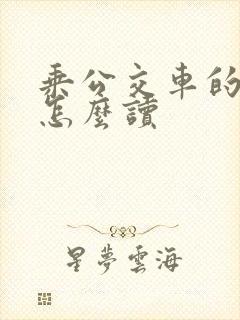 乘公交車的
怎麼讀
星夢雲海